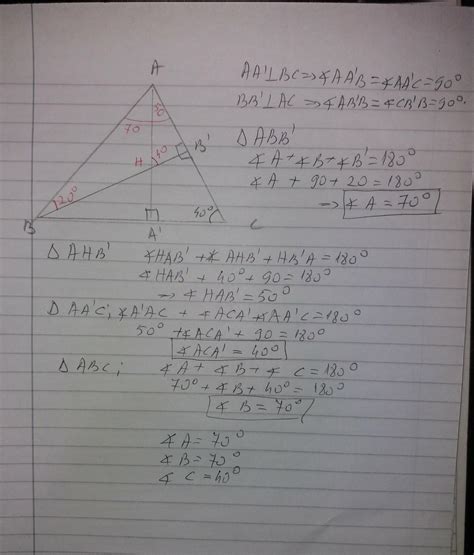 A
AA'⊥BC ⇒ ∢AA'B = ∢AA'C = 90°
BB'⊥AC ⇒ ∢AB'B = ∢CB'B = 90°
70
B'
H
40
20°
40°
B
A'
C
Δ ABB'
∢A + ∢B + ∢B' = 180°
∢A + 90 + 20 = 180°
→ ∢A = 70°
Δ AHB' ∢HAB' + ∢AHB' + HB'A = 180°
∢HAB' + 40° + 90 = 180°
→ ∢HAB' = 50°
Δ AA'C; ∢A'AC + ∢ACA' + ∢AA'C = 180°
50° + ∢ACA' + 90 = 180°
∢ACA' = 40°
Δ ABC; ∢A + ∢B + ∢C = 180°
70° + ∢B + 40° = 180°
∢B = 70°
∢A = 70°
∢B = 70°
∢C = 40°